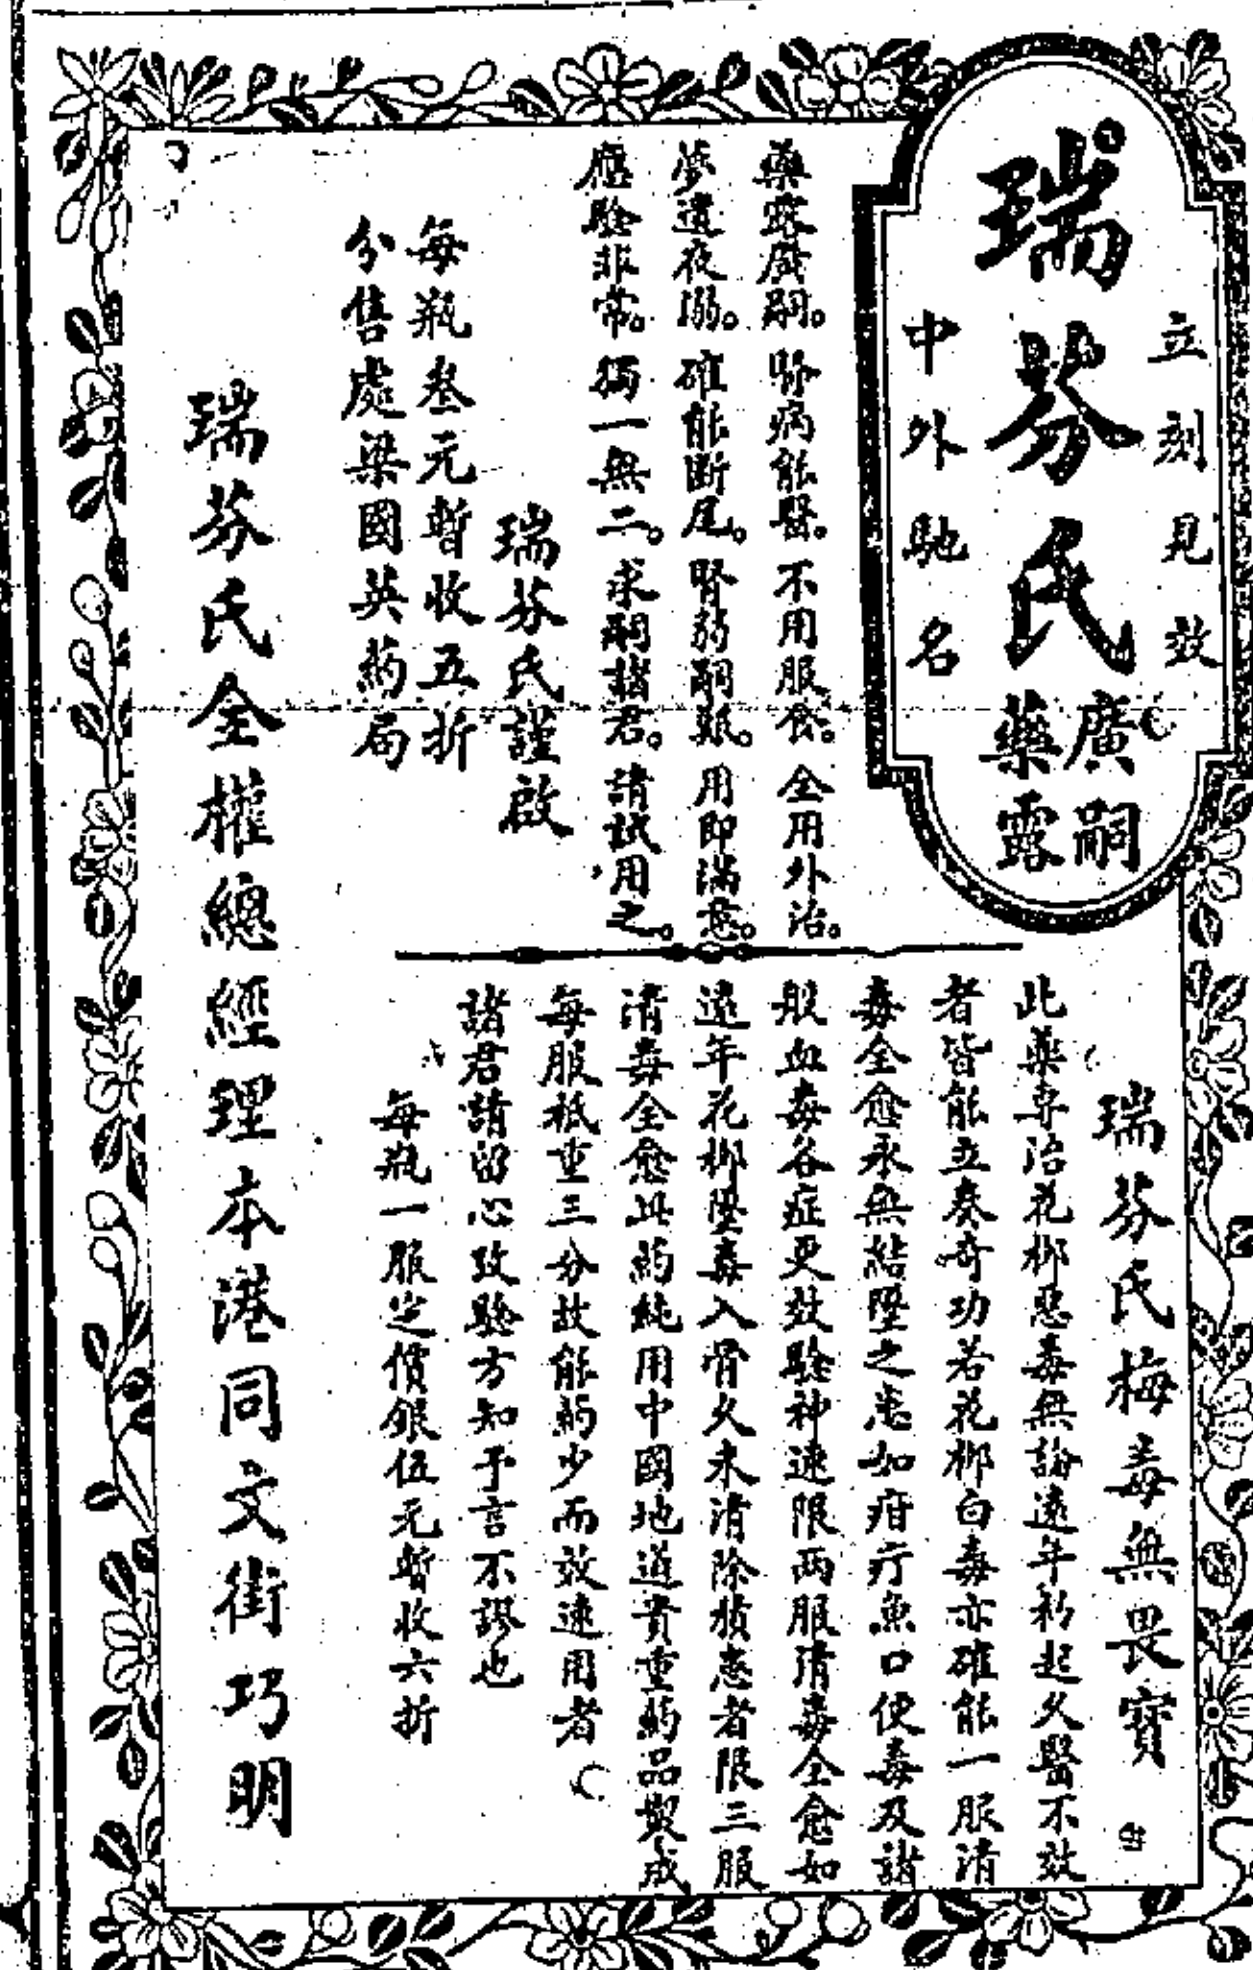 立刻見效
瑞芬氏
廣嗣
藥露
中外馳名
藥露廣嗣。腎病能醫。不用服食。全用外治。
夢遺夜溺。確能斷尾。腎弱嗣艱。用即滿意。
應驗非常。獨一無二。求嗣諸君。請試用之。
瑞芬氏謹啟
每瓶叁元暫收五折
分售處梁國英葯局
瑞芬氏梅毒無畏寶
此藥專治花柳惡毒無論遠年初起久醫不效
者皆能立奏奇功若花柳白毒亦確能一服清
毒全愈永無結墜之患如疳疔魚口便毒及諸
般血毒各症更效驗神速限両服清毒全愈如
遠年花柳墜毒入骨久未清除積患者限三服
清毒全愈此葯純用中國地道貴重葯品製成
每服祇重三分故能葯少而效速用者
諸君請留心攷驗方知予言不謬也
每瓶一服定價銀伍元暫收六折
瑞芬氏全權總經理本港同文街巧明